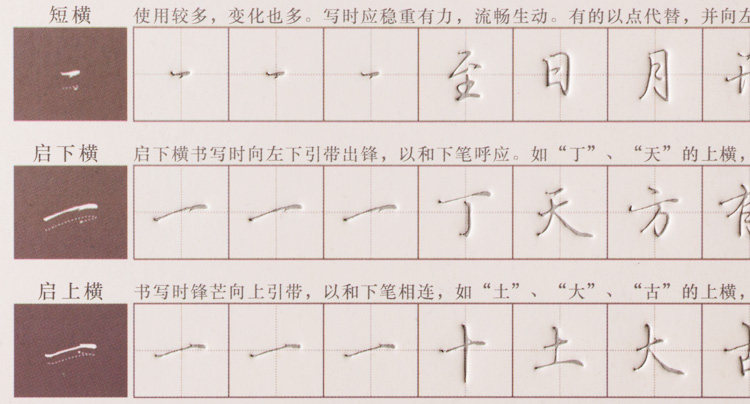 短横 使用较多，变化也多。写时应稳重有力，流畅生动。有的以点代替，并向左
一 一 一 一 至 日 月
启下横 启下横书写时向左下引带出锋，以和下笔呼应。如“丁”、“天”的上横，
一 一 一 一 丁 天 方 有
启上横 书写时锋芒向上引带，以和下笔相连，如“土”、“大”、“古”的上横，
一 一 一 一 十 土 大 古